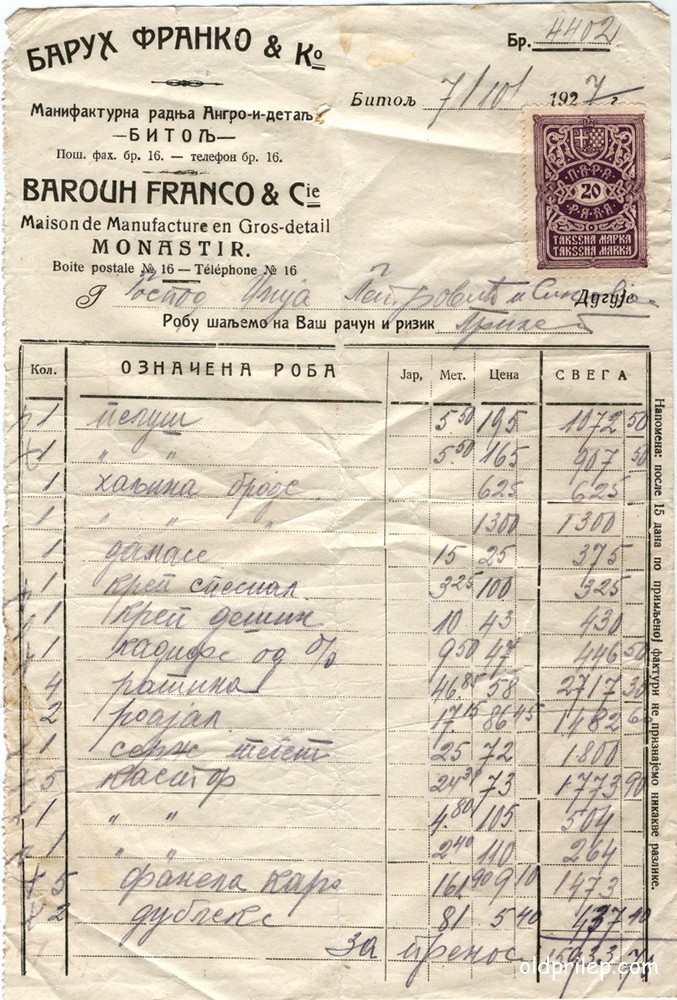 БАРУХ ФРАНКО & Ко
Бр. 4402
Битољ 7/10/ 1927 г.
Манифактурна радња Ангро-и-детаљ
—БИТОЉ—
Пош. фах. бр. 16. — телефон бр. 16.
BAROUH FRANCO & Cie
Maison de Manufacture en Gros-detail
MONASTIR.
Boite postale № 16 — Téléphone № 16
ПАРА
20
PARA
ТАКСЕНА МАРКА
TAKSENA MARKA
Г Господ Илија Петровић и Синовиј Дугује
Робу шаљемо на Ваш рачун и ризик
Кол. ОЗНАЧЕНА РОБА Јар, Мет. Цена СВЕГА
1 пелуш 5 50 195 1072 50
1 " " 5.50 165 907 50
1 хаљина броде 625 625
1 " " " 1300 1300
1 дамасе 15 25 375
1 креп специал 3 25 100 325
1 креп дешин 10 43 430
1 кадифе од % 9 50 47 446 50
4 ратина 46.85 58 2717 30
2 роајал 17.15 86 45 1482 60
1 серж 25 72 1800
5 касатор 24 30 73 1773 90
1 " " 4 80 105 504
1 " " 2 40 110 264
5 фанела каро 161 90 9 10 1473
2 дублекс 81 5 40 437 40
За пренос 15933 70
Напомена: после 15 дана по примљеној фактури не признајемо никакве разлике.
oldprilep.com